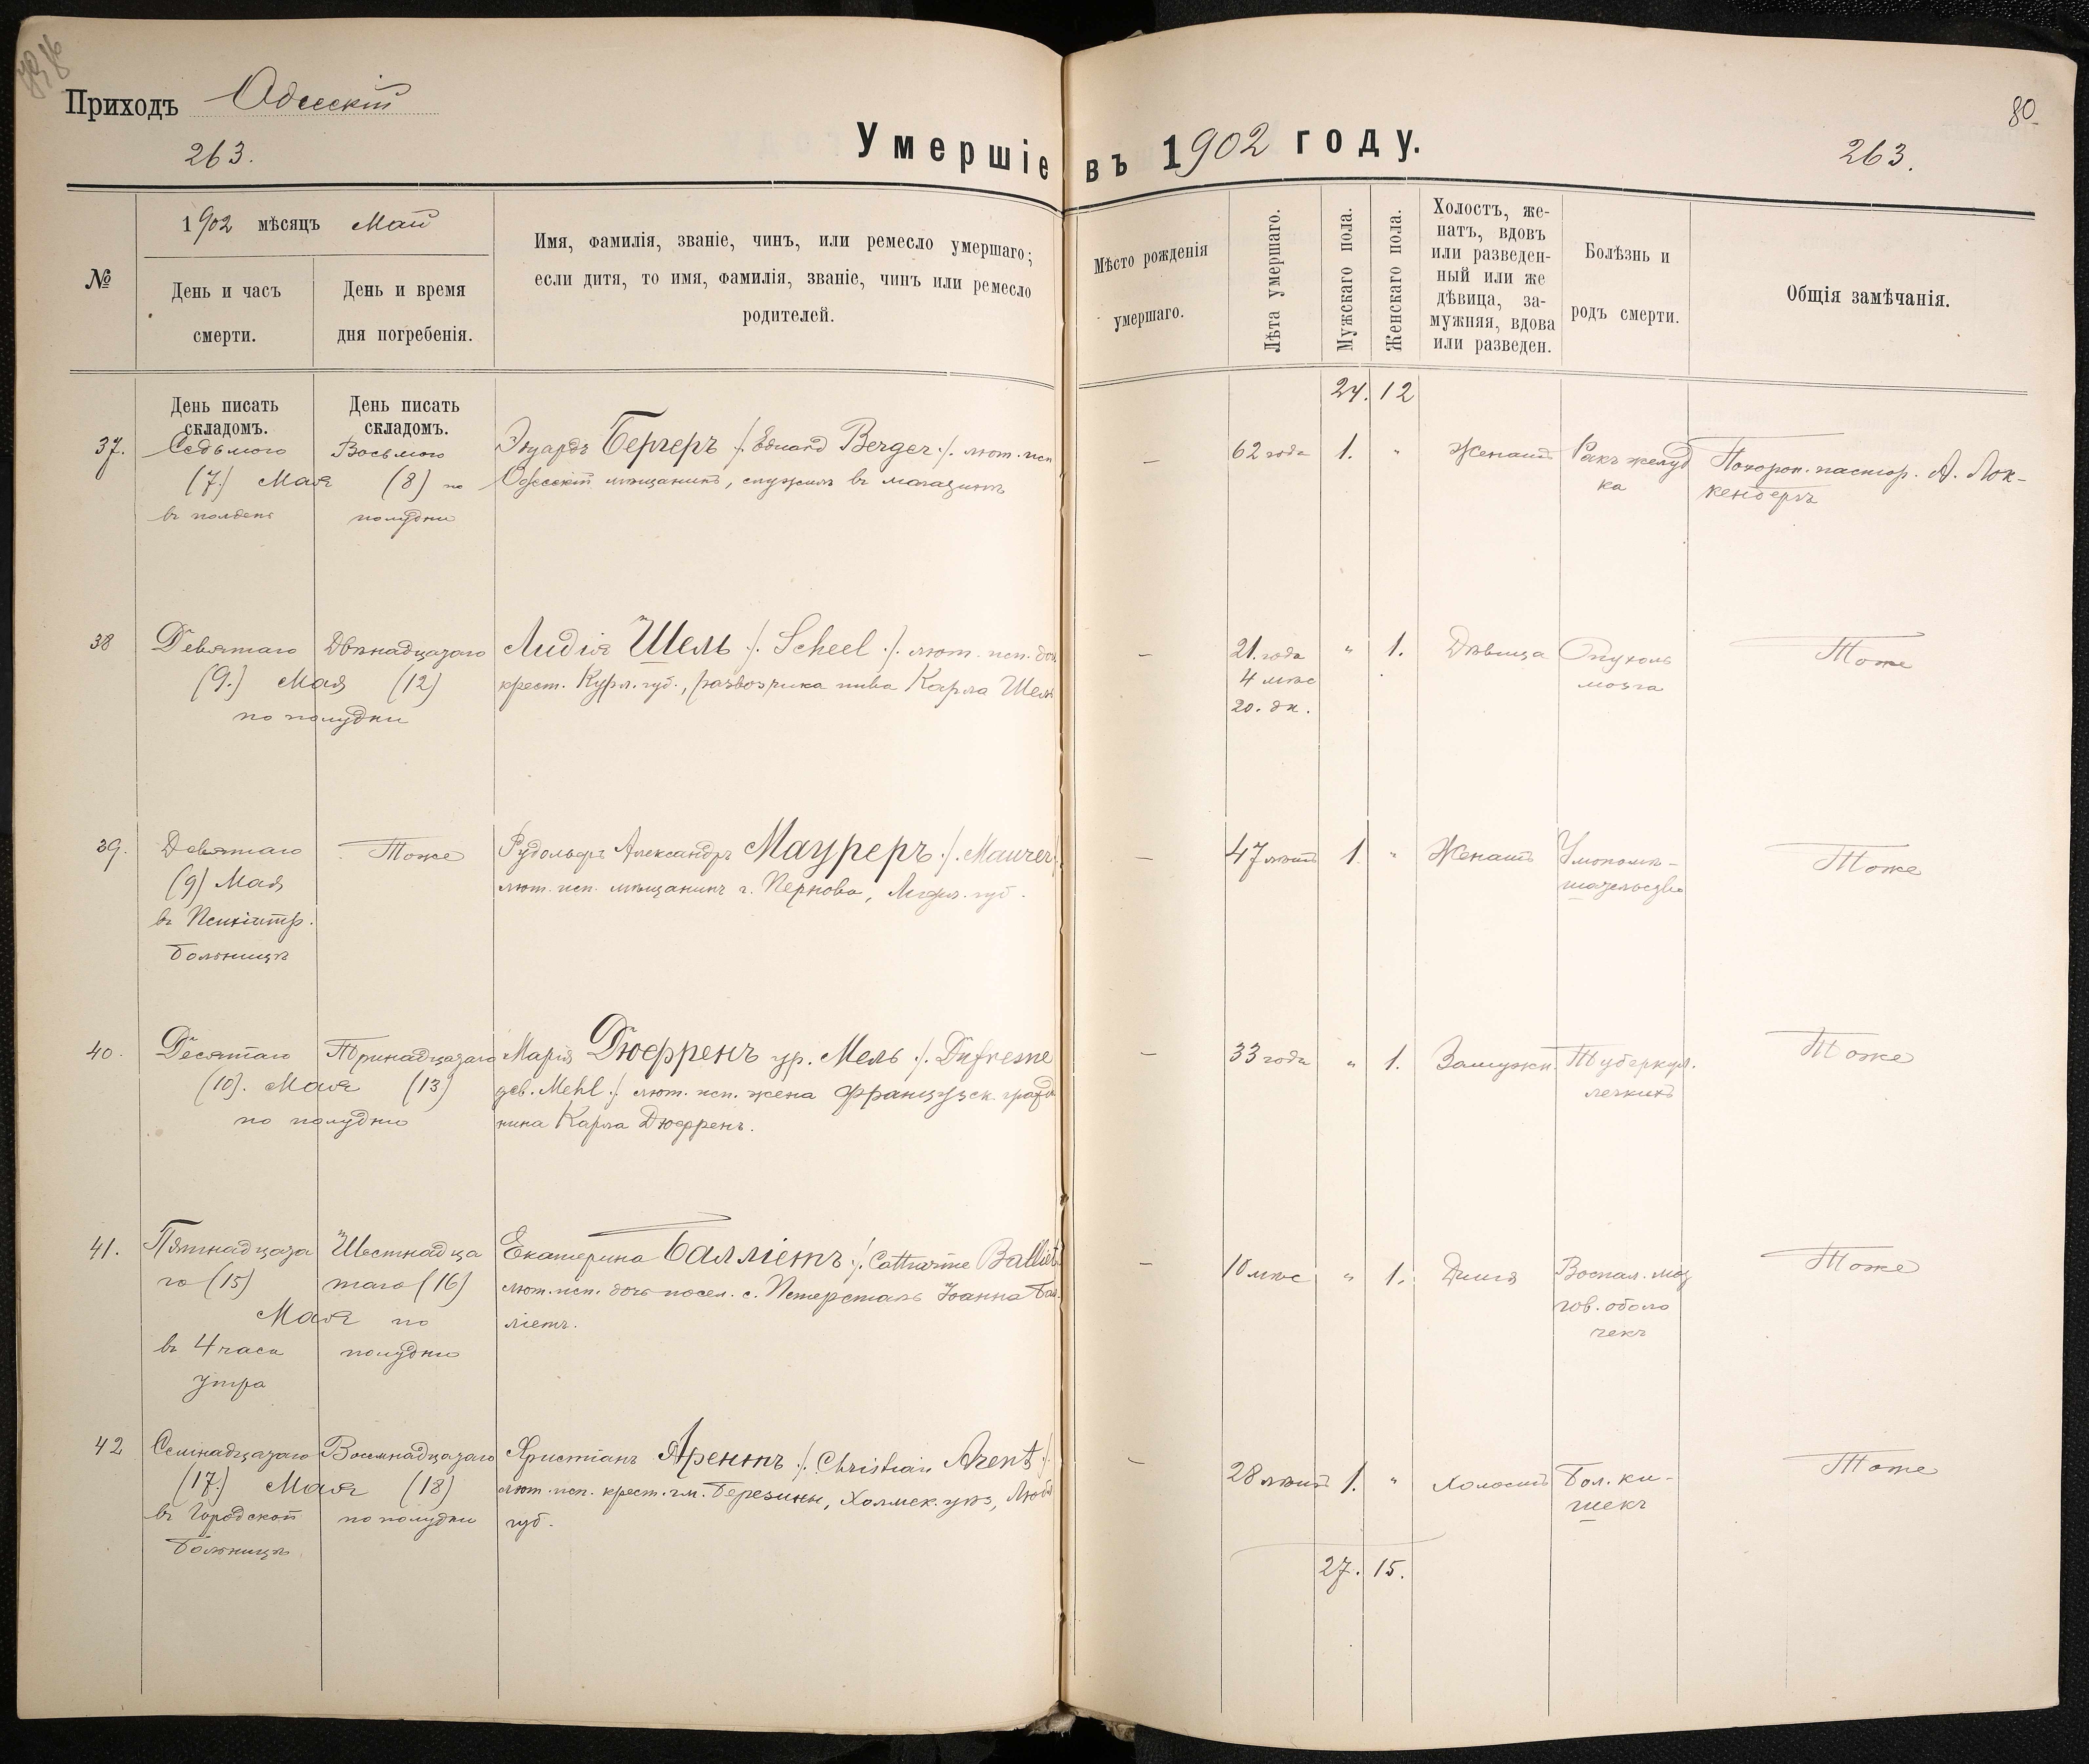 Приходъ Одесскій
263.
Умершіе въ 1902 году.
80
263.
№
1902 мѣсяцъ Май
День и часъ
смерти.
День и время
дня погребенія.
Имя, фамилія, званіе, чинъ, или ремесло умершаго;
если дитя, то имя, фамилія, званіе, чинъ или ремесло
родителей.
Мѣсто рожденія
умершаго.
Лѣта умершаго.
Мужскаго пола.
Женскаго пола.
Холостъ, же-
натъ, вдовъ
или разведен-
ный или же
дѣвица, за-
мужняя, вдова
или разведен.
Болѣзнь и
родъ смерти.
Общія замѣчанія.
День писать
складомъ.
День писать
складомъ.
24. 12
37.
Седьмого
(7.) Мая
въ полдень
Восьмого
(8) по
полудни
Эдуардъ Бергеръ /. Eduard Berger ./. лют. исп
Одесскій мѣщанинъ, служилъ въ магазинѣ
—
62 года
1.
"
Женатъ
Ракъ желуд
ка
Похорон. пастор. А. Лок-
кенбергъ
38
Девятаго
(9.) Мая
Двѣнадцатаго
(12)
по полудни
Лидія Шель /. Scheel ./. лют. исп. доч.
крест. Курл. губ., развозчика пива Карла Шель
—
21. года
4 мѣс
20. дн.
"
1.
Дѣвица
Опухоль
мозга
Тоже
39.
Девятаго
(9) Мая
въ Психіатр.
больницѣ
Тоже
Рудольфъ Александръ Мауреръ ./. Maurer/.
лют. исп. мѣщанинъ г. Пернова, Лифл. губ.
—
47 лѣтъ
1.
"
Женатъ
Умопомѣ-
шательство
Тоже
40.
Десятаго
(10). Мая
Тринадцатаго
(13)
по полудни
Марія Дюфренъ ур. Мель /. Dufresne
geb. Mehl ./. лют. исп. жена французск. гражда
нина Карла Дюфренъ.
—
33 года
"
1.
Замужн.
Туберкул.
легкихъ
Тоже
41.
Пятнадцата
го (15)
Мая
въ 4 часа
утра
Шестнадца
таго (16)
по
полудни
Екатерина Балліетъ /. Catharine Balliet
лют. исп. дочь посел. с. Петерсталь Іоанна Бал
ліетъ.
—
10 мѣс
"
1.
Дитя
Воспал. моз
гов. оболо
чекъ
Тоже
42
Семнадцатаго
(17.) Мая
въ Городской
больницѣ
Восемнадцатаго
(18)
по полудни
Христіанъ Арентъ /. Christian Arent /.
лют. исп. крест. гм. Березины, Холмск. уѣз, Люб
губ.
—
28 лѣтъ
1.
"
Холостъ
Бол. ки-
шекъ
Тоже
27. 15.